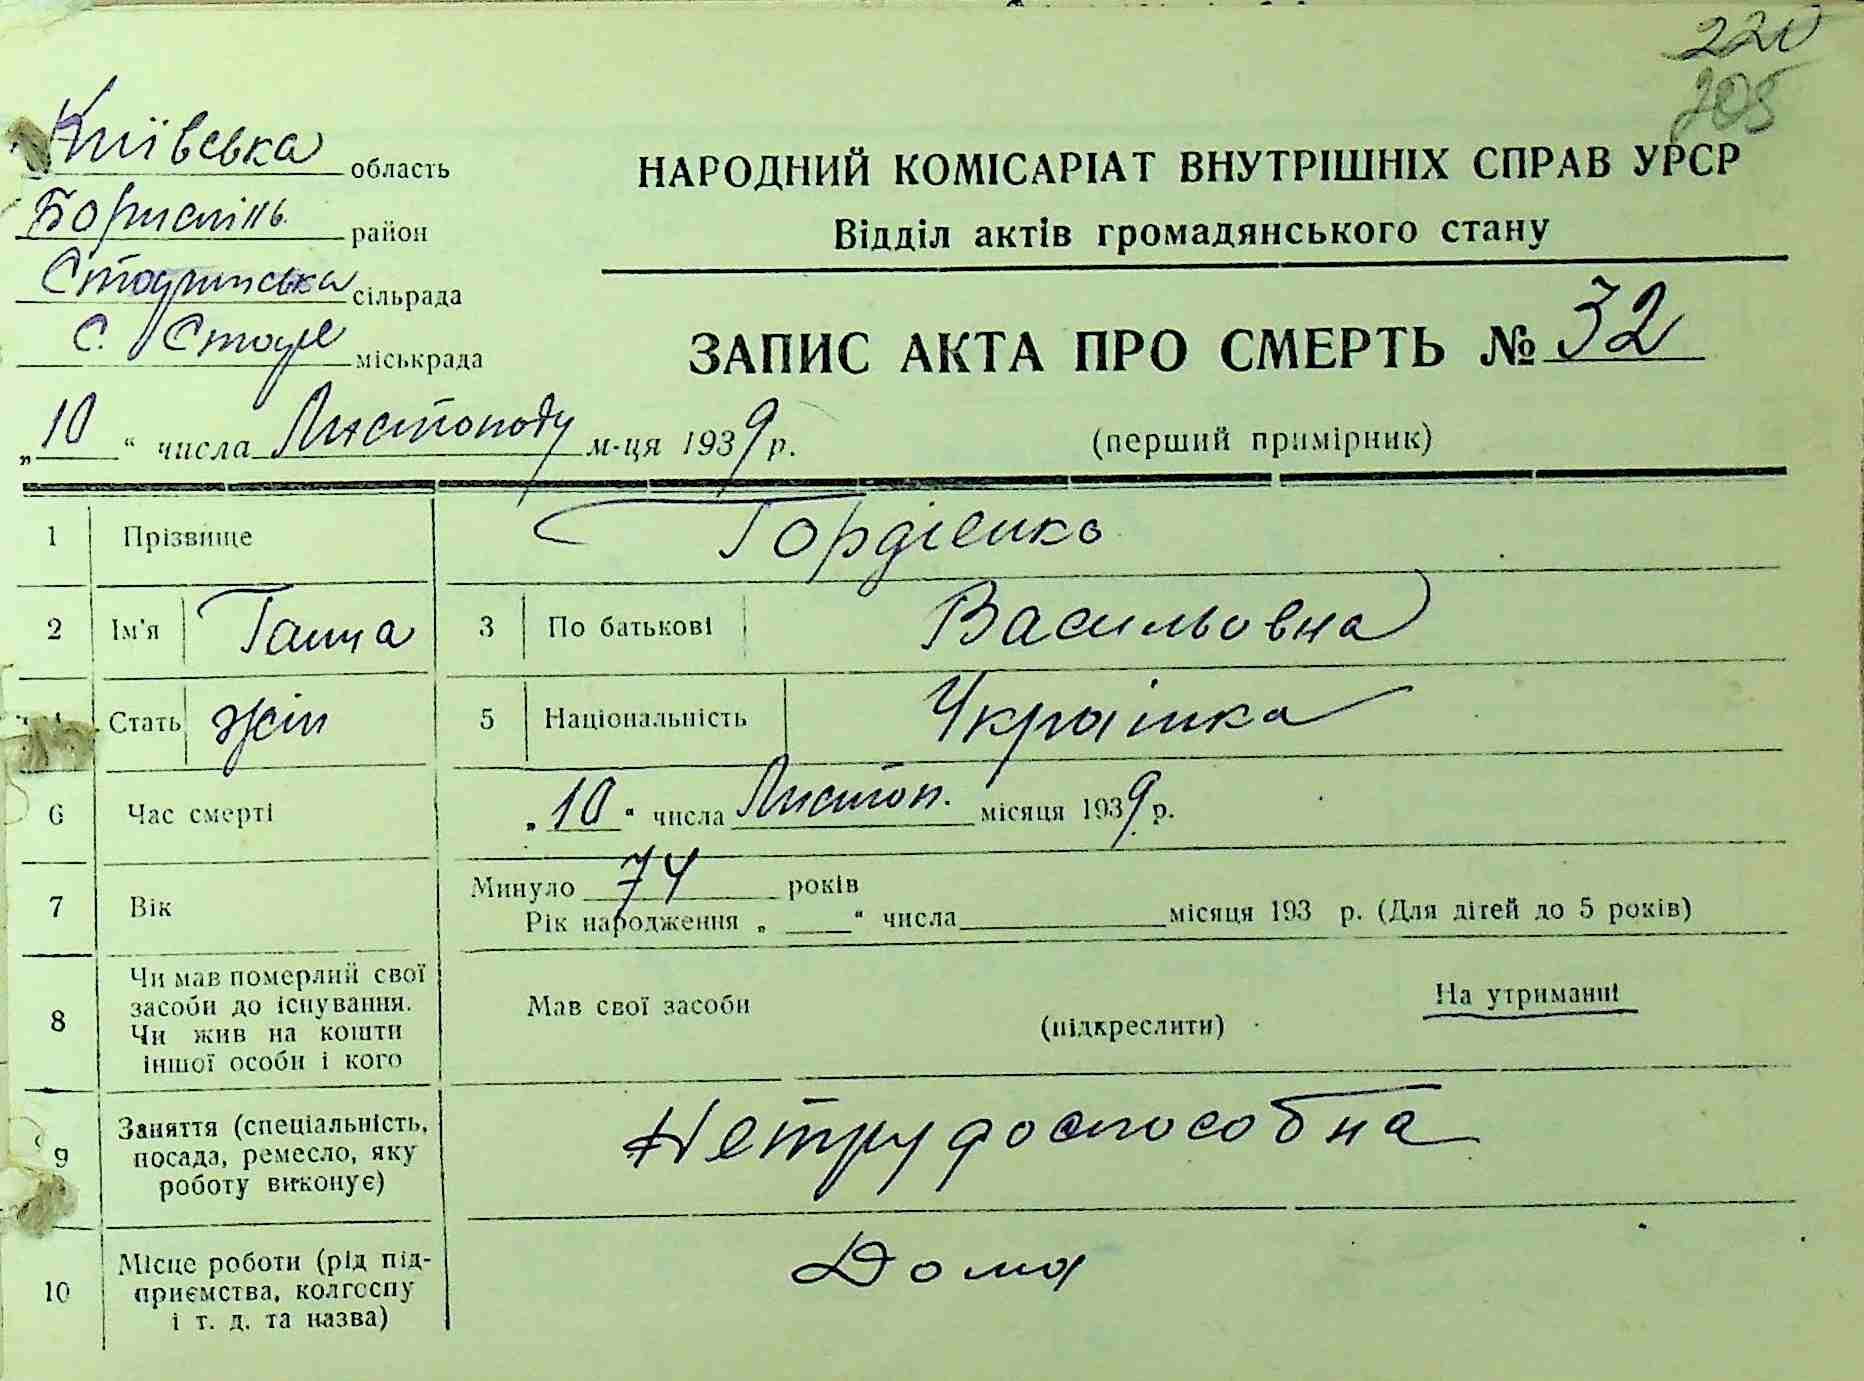 220
205
Київська область
Бориспіль район
Старинська сільрада
с. Старе міськрада
НАРОДНИЙ КОМІСАРІАТ ВНУТРІШНІХ СПРАВ УРСР
Відділ актів громадянського стану
ЗАПИС АКТА ПРО СМЕРТЬ № 32
„10“ числа Листопаду м-ця 1939 р.
(перший примірник)
1 Прізвище Гордієнко
2 Ім'я Ганна 3 По батькові Васильовна
Стать жін 5 Національність Українка
6 Час смерті „10“ числа Листоп. місяця 1939 р.
7 Вік Минуло 74 років
Рік народження „ “ числа місяця 193 р. (Для дітей до 5 років)
8 Чи мав померлий свої
засоби до існування.
Чи жив на кошти
іншої особи і кого
Мав свої засоби (підкреслити) На утриманні
9 Заняття (спеціальність,
посада, ремесло, яку
роботу виконує)
Нетрудоспособна
10 Місце роботи (рід під-
приємства, колгоспу
і т. д. та назва)
Дома